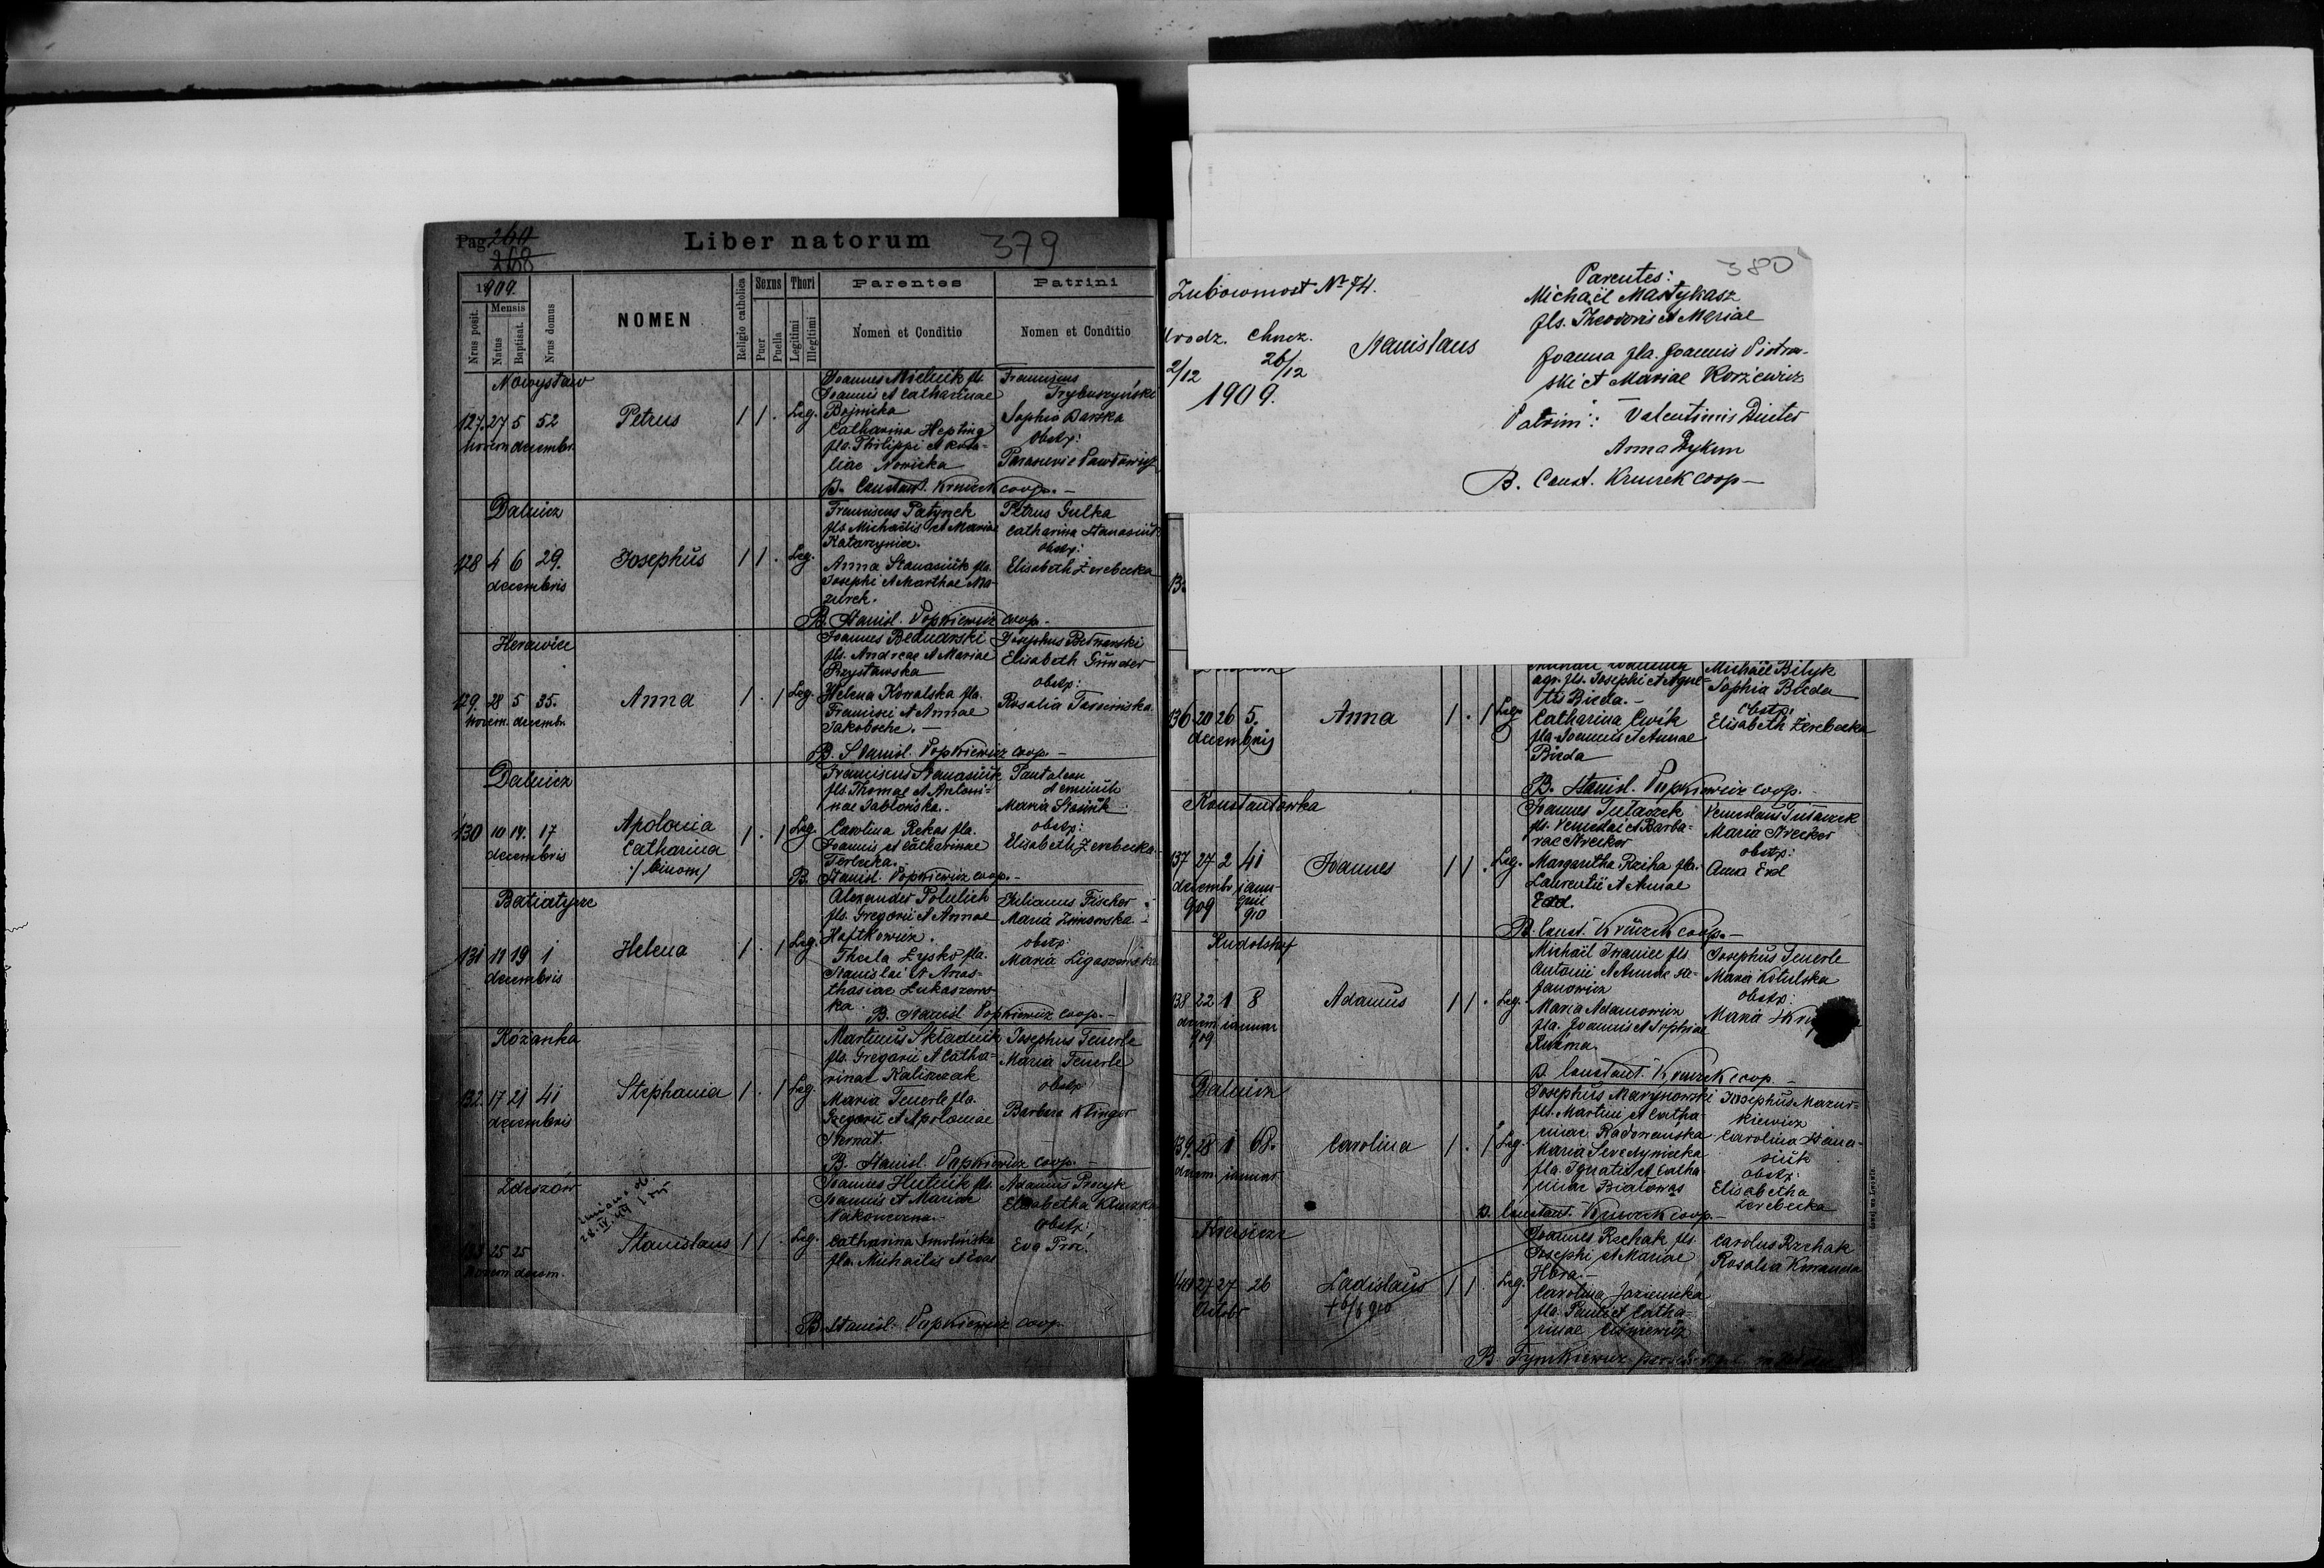 Pag. 260
268
Liber natorum
379
1909.
Nrus posit.
Mensis
Natus
Baptisat.
Nrus domus
NOMEN
Religio catholica
Sexus
Puer
Puella
Thori
Legitimi
Illegitimi
Parentes
Nomen et Conditio
Patrini
Nomen et Conditio
Nowystaw
127. 27 5 52
novem decembr.
Petrus
1 1 . Leg.
Joannes Mielnik fls.
Joannis et Catharinae
Bojnicka
Catharina Hepting
fla. Philippi et Rosa-
liae Nowicka
Franciscus
Trybuszyński
Sophia Barska
obstp:
B. Constant. Kruczek coop. -
Dalnicz
128 4 6 29.
decembris
Josephus
1 1 . Leg.
Franciscus Patynek
fls Michaëlis et Mariae
Anna Stanasiuk fla.
Josephi et Marthae Ma-
zurek.
Petrus Gulka
Catharina Stanasiuk
obstp:
Elisabeth Zerebecka
B. Stanisl. Popkiewicz coop. -
129. 28 5 35.
novem. decembr.
Anna
1 . 1 Leg.
Joannes Bednarski
fls. Andreae et Mariae
Przystawska
Helena Kowalska fla.
Francisci et Annae
Josephus Bednarski
Elisabeth Günder
obstp:
Rosalia
B. Stanisl. Popkiewicz coop. -
Dalnicz
130 10 14. 17
decembris
Apolonia
Catharina
/ binom /
1 . 1 Leg.
Franciscus Stanasiuk
fls. Thomae et Antoni-
nae Jabłońska. -
Carolina Rekas fla.
Joannis et Catharinae
Terlecka. -
Pantaleon
Maria Stasiuk
obstp:
Elisabeth Zerebecka
B. Stanisl. Popkiewicz coop. -
Batiatycze
131 11 19 1
decembris
Helena
1 . 1 Leg.
Alexander Polulich
fls. Gregorii et Annae
Haftkowicz.
Thecla Zysko fla.
Stanislai et Anas-
thasiae Lukaszews-
ka.
Julianus Fischer
Maria Zimowska
obstp:
Maria
B. Stanisl Popkiewicz coop. -
Rózanka
132. 17 21 41
decembris
Stephania
1 . 1 Leg.
Martinus Składnik
fls. Gregorii et Catha-
rinae Kaliszczak
Maria Feuerle fla.
Gregorii et Apoloniae
Sternat.
Josephus Feuerle
Maria Feuerle
obstp
Barbara Klinger
B. Stanisl. Popkiewicz coop. -
Zdeszów
133 25 25
novem decem.
Stanislaus
1 1 . Leg.
Joannes Hutnik fls.
Joannis et Mariae
Nakoneczna. -
Catharina Smolinska
fla. Michaëlis et Evae
Adamus Procyk
Elisabetha
obstp:
Eva Proc.
B. Stanisl. Popkiewicz coop.
380
Zubowmost Nº 74.
Urodz. Chrcz.
2/12 26/12
1909.
Stanislaus
Parentes:
Michaël Mastykasz
fls. Theodoris et Mariae
Joanna fla. Joannis Piotrow-
ski et Mariae Korziewicz
Patrini: Valentinus Dinter
Anna Dykun
B. Const. Kruczek coop -
136 20 26 5.
decembris
Anna
1 . 1 Leg.
agr. fls. Josephi et Agne-
tis Bieda. -
Catharina Cwik
fla. Joannis et Annae
Bieda
Michaël Bilyk
Sophia Bieda
obstp:
Elisabeth Zerebecka
B. Stanisl. Popkiewicz coop. -
Konstantowka
137 27 2 41
decembr janu-
909 910
Joannes
1 1 . Leg.
Joannes Tutaczek
fls. Venceslai et Barba-
rae Strecker
Margaritha Reiha fla.
Laurentii et Annae
Erd.
Venceslaus Tutaczek
Maria Strecker
obstp:
Anna Erd
B. Const. Kruczek coop. -
Rudolshof
138 22 1 8
decem januar
909
Adamus
1 1 . Leg.
Michaël Iwaniec fls
Antonii et Annae Ste-
fanowicz
Maria Adamowicz
fla. Joannis et Sophiae
Kuzma.
Josephus Feuerle
Maria Kotulska
obstp:
Maria
B. Constant. Kruczek coop. -
Dalnicz
139. 28 1 68.
decem januar
Carolina
1 . 1 Leg.
Josephus Marynowski
fls. Martini et Catha-
rinae Radowanska
Maria
fla. Ignatii et Catha-
rinae Białowąs
Josephus Mazur-
kiewicz
Carolina Stana-
siuk
obstp:
Elisabetha
Zerebecka
B. Constant. Kruczek coop. -
140 27 27 26
Octobr.
Ladislaus
1 1 Leg.
Joannes Rzehak fls.
Josephi et Mariae
Hora. -
Carolina
fla. Pauli et Catha-
rinae
Carolus Rzehak
Rosalia
B. Tymkiewicz